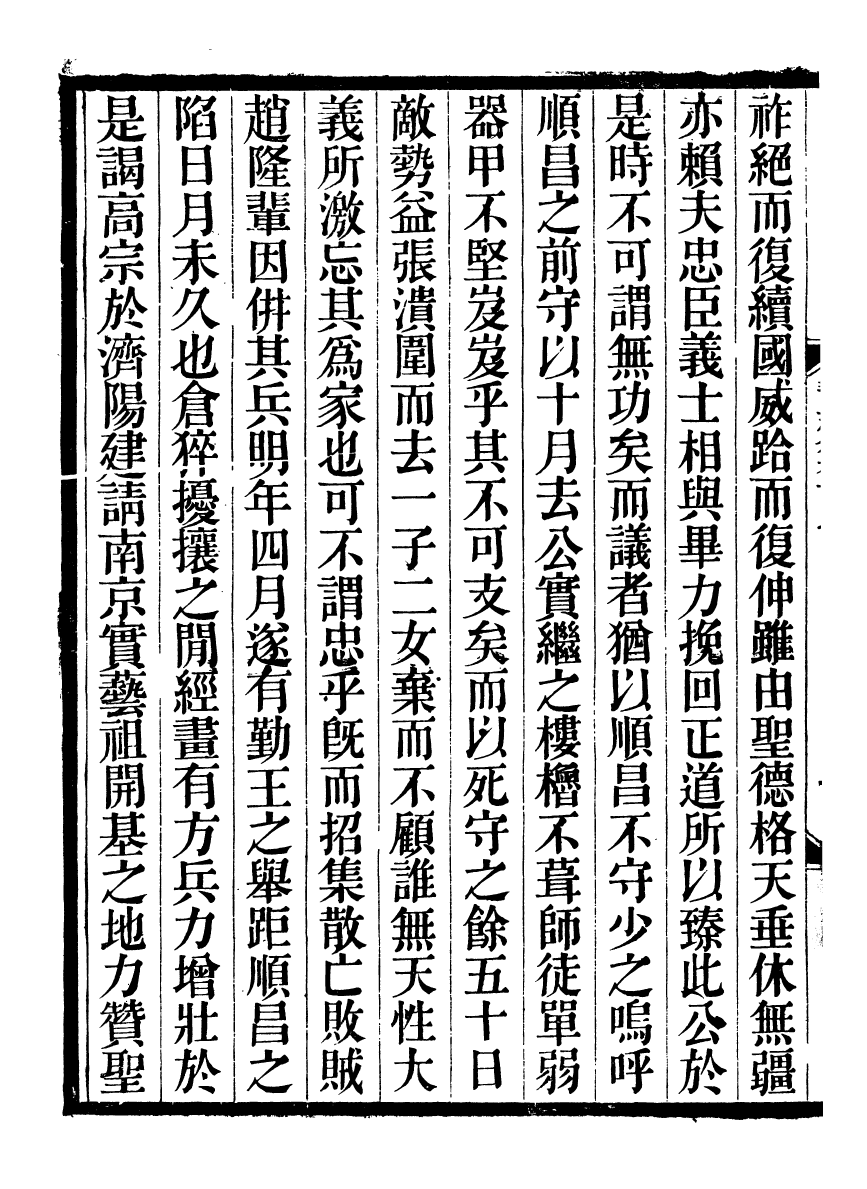 祚絕而復續國威跲而復伸雖由聖德格天垂休無疆
亦賴夫忠臣義士相與畢力挽回正道所以臻此公於
是時不可謂無功矣而議者猶以順昌不守少之嗚呼
順昌之前守以十月去公實繼之樓櫓不葺師徒單弱
器甲不堅岌岌乎其不可支矣而以死守之餘五十日
敵勢益張潰圍而去一子二女棄而不顧誰無天性大
義所激忘其爲家也可不謂忠乎旣而招集散亡敗賊
趙隆輩因倂其兵明年四月遂有勤王之舉距順昌之
陷日月未久也倉猝擾攘之閒經畫有方兵力增壯於
是謁高宗於濟陽建請南京實藝祖開基之地力贊聖